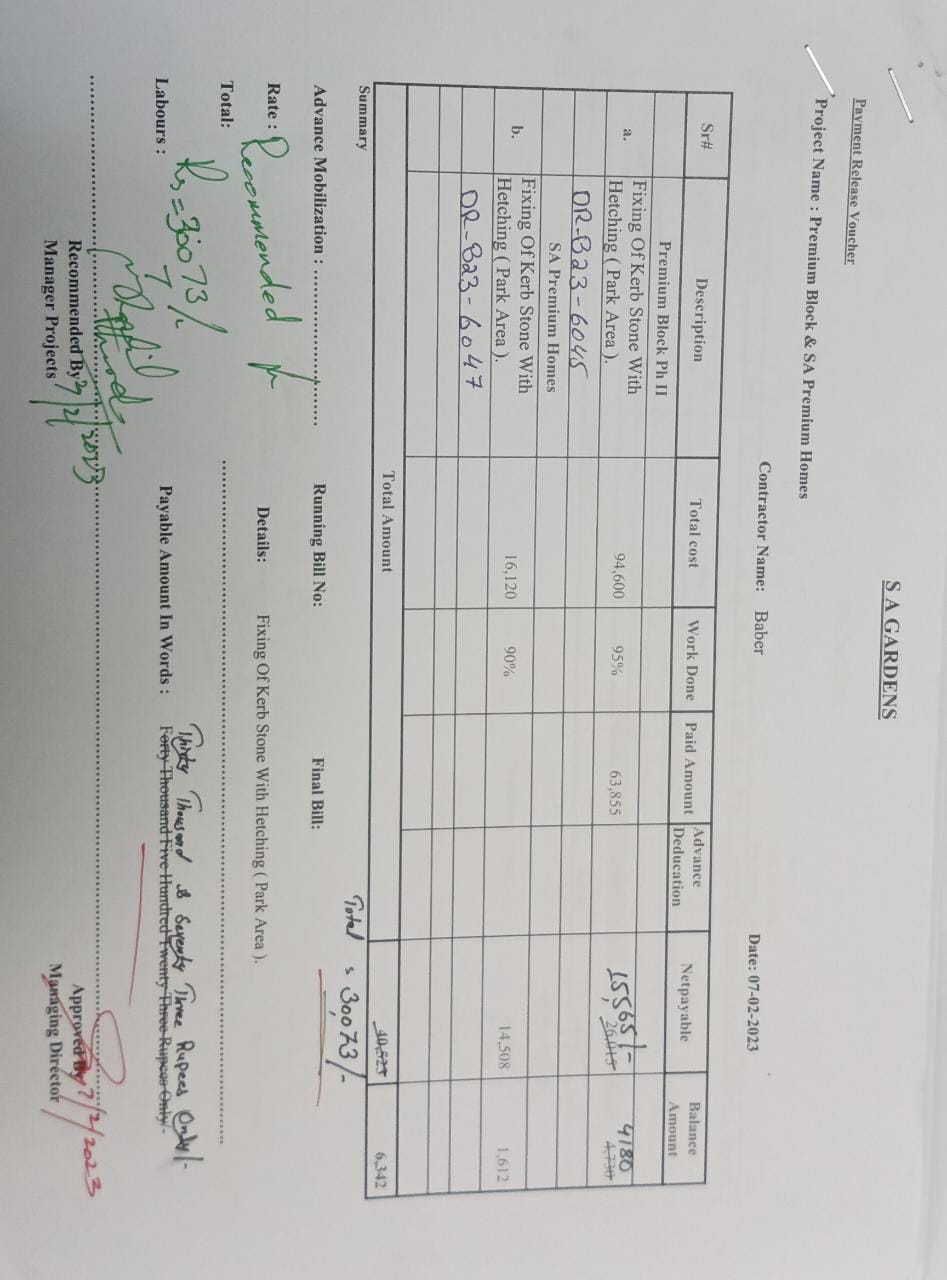 S A GARDENS
Payment Release Voucher
Project Name : Premium Block & SA Premium Homes
Contractor Name: Baber Date: 07-02-2023
Sr# Description Total cost Work Done Paid Amount Advance Deducation Netpayable Balance Amount
Premium Block Ph II
a. Fixing Of Kerb Stone With Hetching ( Park Area ). 94,600 95% 63,855 15,565/- 26,015 4180 4,730
DR-B23-6045
SA Premium Homes
b. Fixing Of Kerb Stone With Hetching ( Park Area ). 16,120 90% 14,508 1,612
DR-B23-6047
Total Amount 40,523 6,342
Summary Total 30073/-
Advance Mobilization : Running Bill No: Final Bill:
Rate : Recommended Details: Fixing Of Kerb Stone With Hetching ( Park Area ).
Total:
Rs=30073/-
Labours : Payable Amount In Words : Thirty Thousand & Seventy Three Rupees Only/-
Forty Thousand Five Hundred Twenty Three Rupees Only/-
Recommended By 7/2/2023 Approved By 7/2/2023
Manager Projects Managing Director